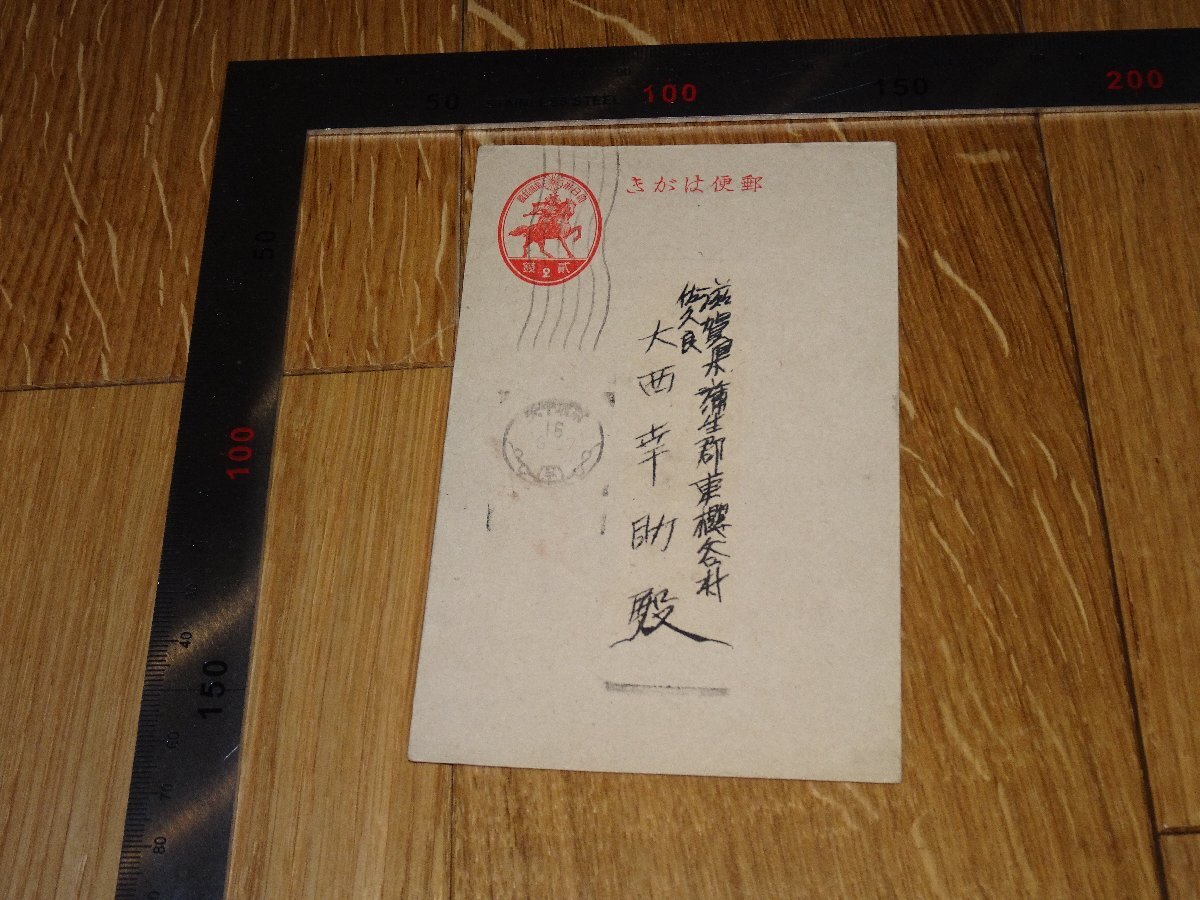 50
STAINLESS STEEL
100
150
200
50
100
150
40
60
76
80
郵便はがき
大日本帝国政府
貳2錢
滋賀県蒲生郡東櫻谷村
佐久良
大西幸助殿
16